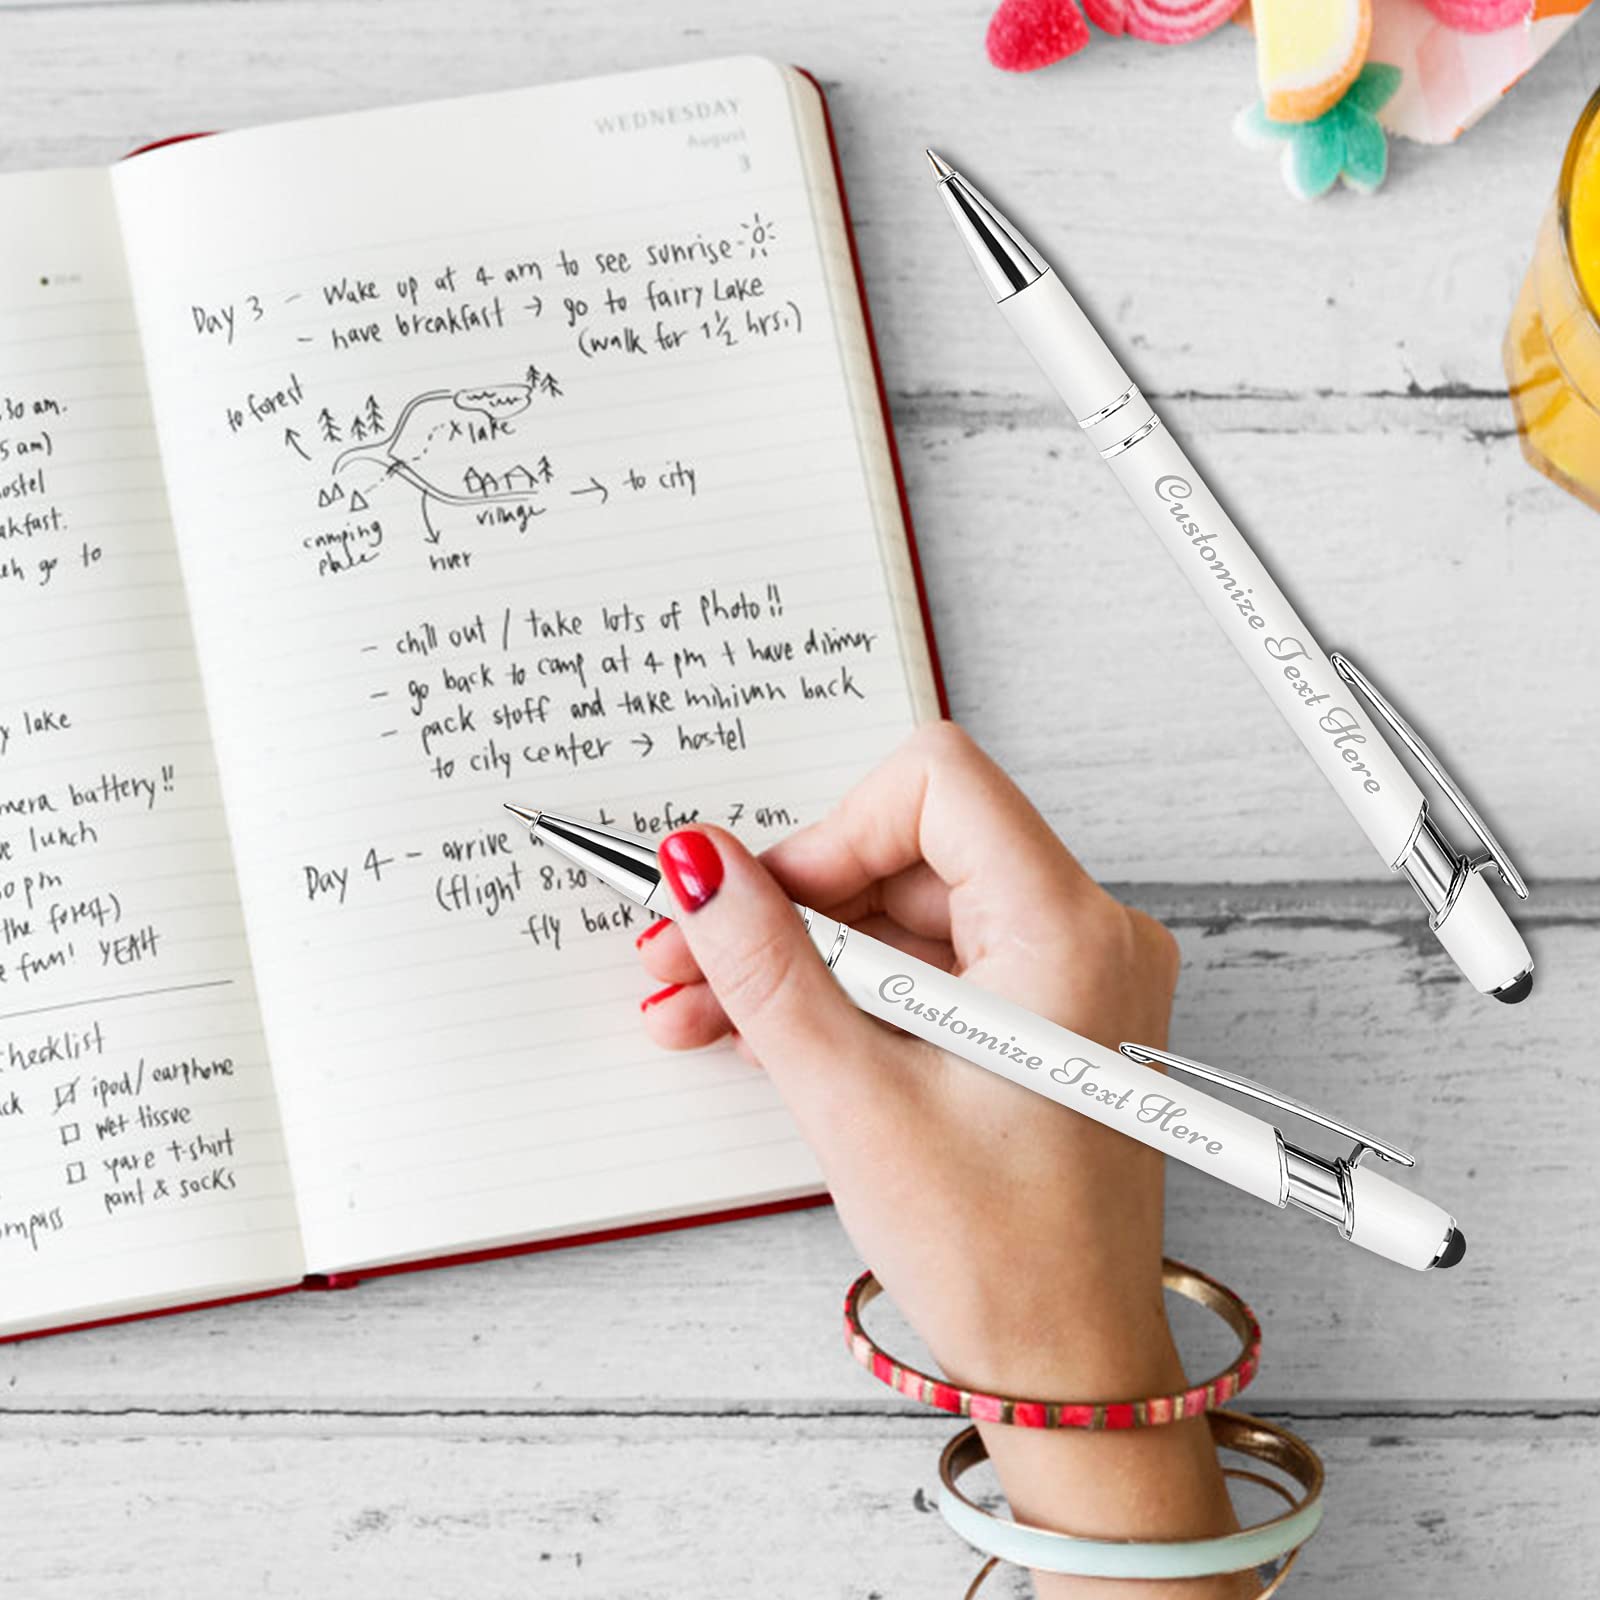 :30 am.
5 am)
ostel
akfast.
go to
y lake
mera battery!!
lunch
pm
the forest)
fun! YEAH
hecklist
ck ☑ ipod/earphone
☐ wet tissue
☐ spare t-shirt
pant & socks
mpass
WEDNESDAY
August
3
Day 3 - Wake up at 4 am to see sunrise
- have breakfast → go to fairy Lake
(walk for 1 1/2 hrs.)
to forest
x lake
→ to city
village
camping
place
river
- chill out / take lots of photo!!
- go back to camp at 4 pm + have dinner
- pack stuff and take minivan back
to city center → hostel
Day 4 - arrive before 7 am.
(flight 8,30
fly back
Customize Text Here
Customize Text Here